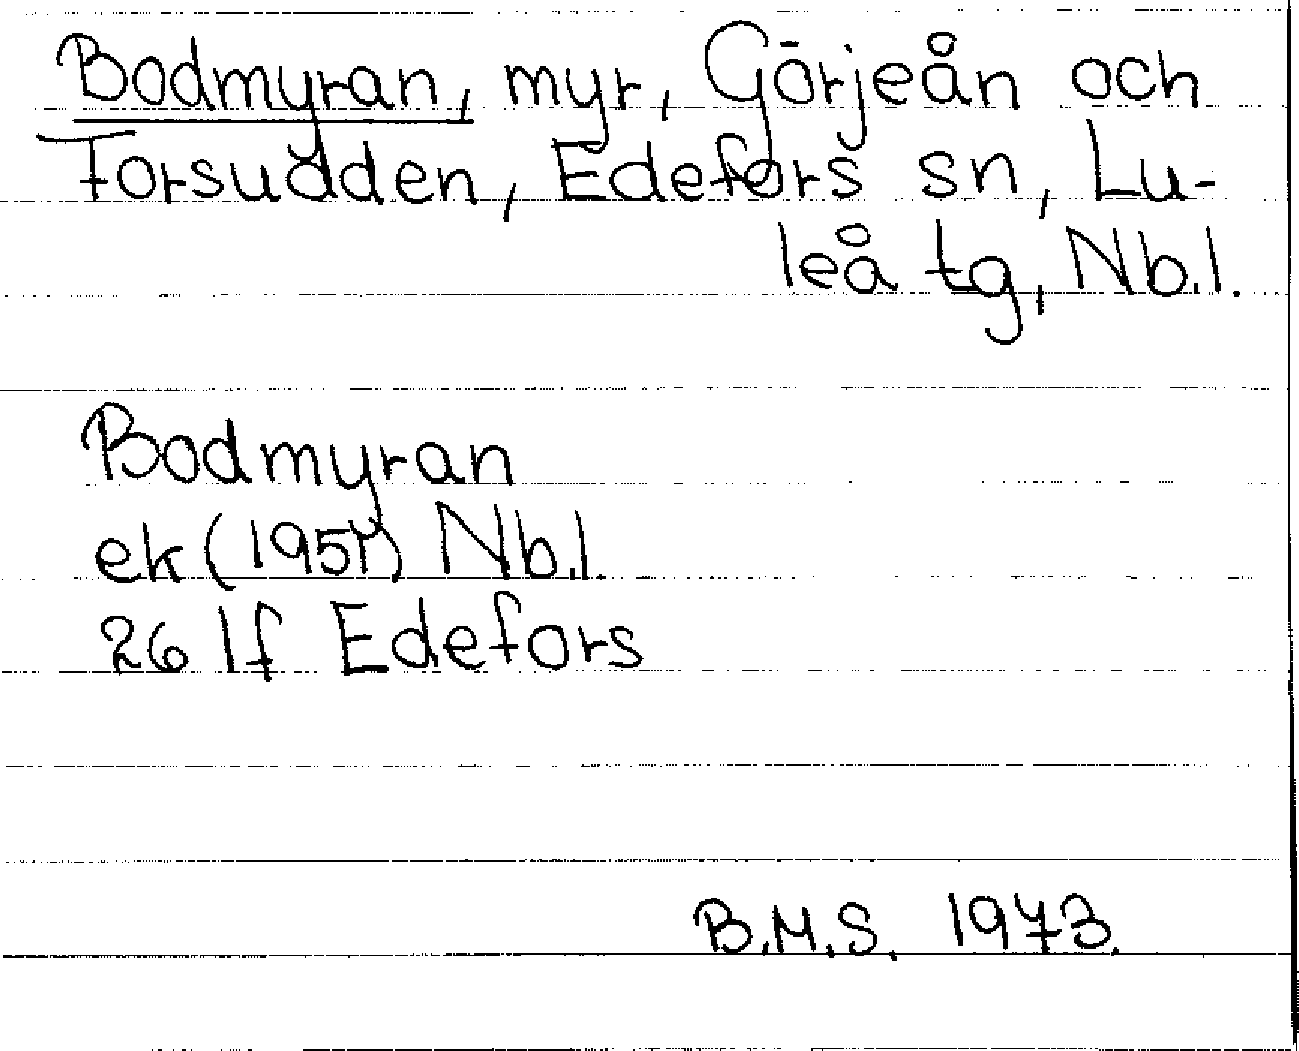 Bodmyran, myr, Görjeån och
Forsudden, Edefors sn, Lu-
leå tg, Nb.l.
Bodmyran
ek (1957) Nb.l.
26 If Edefors
B.M.S. 1973.